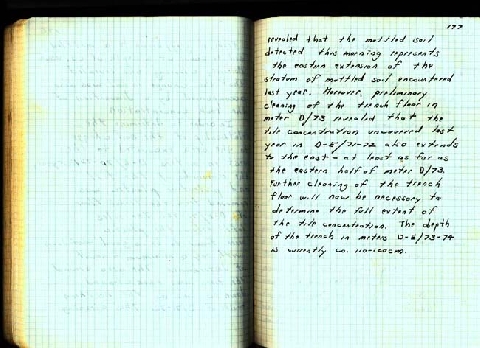 133
revealed that the mottled soil
detected this morning represents
the eastern extension of the
stratum of mottled soil encountered
last year. Moreover, preliminary
cleaning of the trench floor in
meter D/73 revealed that the
tile concentration uncovered last
year in D-E/71-72 also extends
to the east - at least as far as
the eastern half of meter D/73.
Further cleaning of the trench
floor will now be necessary to
determine the full extent of
the tile concentration. The depth
of the trench in meters D-E/73-74
is currently ca.